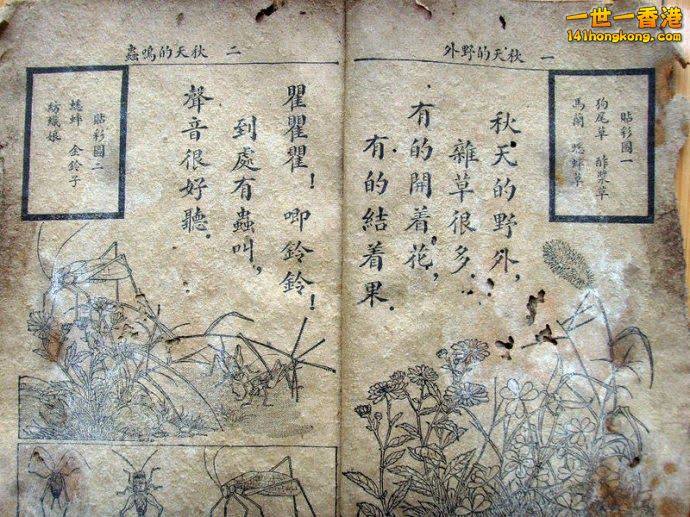 一世一香港
141hongkong.com
一 秋天的野外
貼彩圖一
狗尾草 酢漿草
馬蘭 蟋蟀草
秋天的野外，
雜草很多。
有的開着花，
有的結着果。
二 秋天的鳴蟲
瞿瞿瞿！唧鈴鈴！
到處有蟲叫，
聲音很好聽。
貼彩圖二
蟋蟀 金鈴子
紡織娘